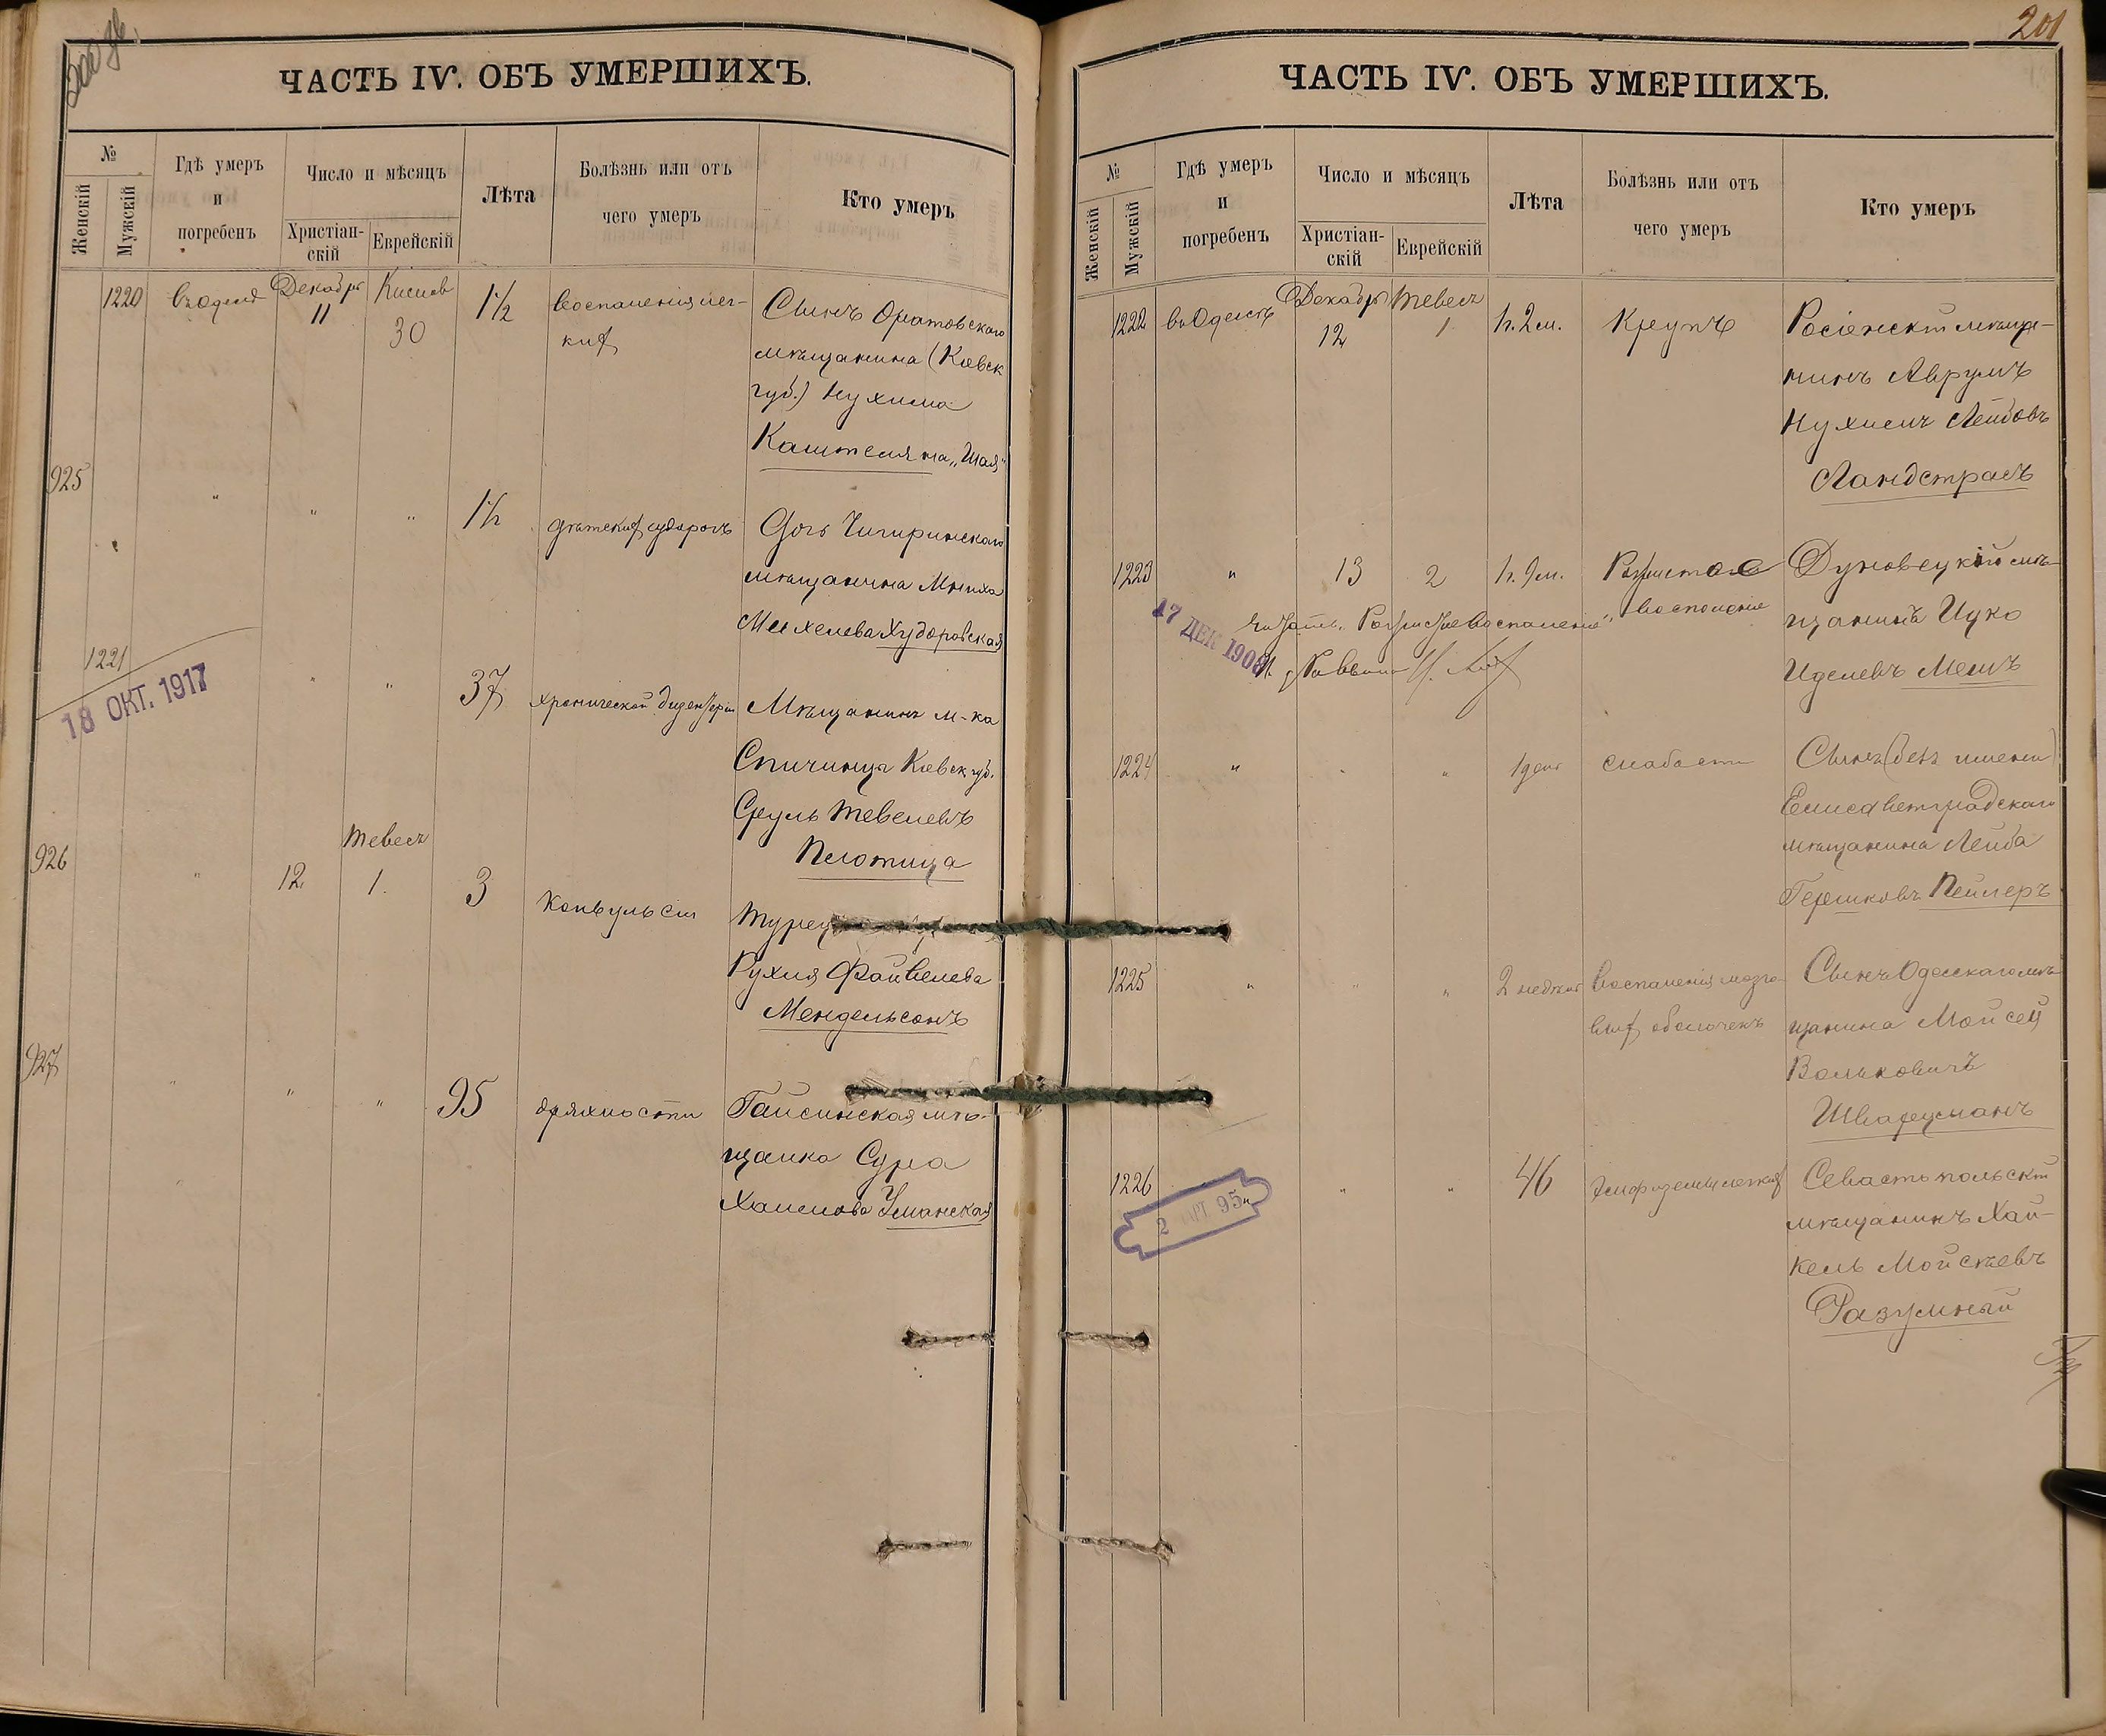 ЧАСТЬ IV. ОБЪ УМЕРШИХЪ.
№
Женскій
Мужскій
Гдѣ умеръ
и
погребенъ
Число и мѣсяцъ
Христіан-
скій
Еврейскій
Лѣта
Болѣзнь или отъ
чего умеръ
Кто умеръ
1220
Декабря
11
Кислев
30
1 1/2
воспаленія лег-
ких
Сынъ Оратовскаго
мѣщанина (Киевск
губ.) Нухима
Каштеляна „Шая“
925
"
"
"
1 1/2
дѣтских судорогъ
Дочь Чигиринскаго
мѣщанина
Худоровская
1221
18 ОКТ. 1917
"
"
37
хронической
Мѣщанинъ м-ка
Спичинцы Киевск губ.
Сруль Тевелевъ
Плотица
926
"
12
Тевесъ
1.
3
Конвульсіи
Рухля Файвелева
Мендельсонъ
927
"
"
"
95
дряхлости
Гайсинская мѣ-
щанка Сура
Хаимова Уманская
201
ЧАСТЬ IV. ОБЪ УМЕРШИХЪ.
№
Женскій
Мужскій
Гдѣ умеръ
и
погребенъ
Число и мѣсяцъ
Христіан-
скій
Еврейскій
Лѣта
Болѣзнь или отъ
чего умеръ
Кто умеръ
1222
въ Одессѣ
Декабря
12
Тевесъ
1
1г. 2м.
Крупъ
Росіенскій мѣща-
нинъ Аврумъ
Нухим Лейбовъ
Ландстрасъ
1223
"
13
2
1г. 9м.
воспаленіе
Дуновецкій мѣ-
щанинъ Ицко
Иделевъ Мешъ
17 ДЕК 1908
1224
"
"
"
1 день
слабости
Сынъ (безъ имени)
Елисаветградскаго
мѣщанина Лейба
Гершковъ Пейлеръ
1225
"
"
"
2 недѣли
Воспаленія мозго-
вых оболочекъ
Сынъ Одесскаго мѣ-
щанина Мойсей
Вольковичъ
Шварцманъ
1226
"
"
"
46
Эмфиземы легких
Севастьпольскій
мѣщанинъ Хай-
кель Мойсѣевъ
Разумный